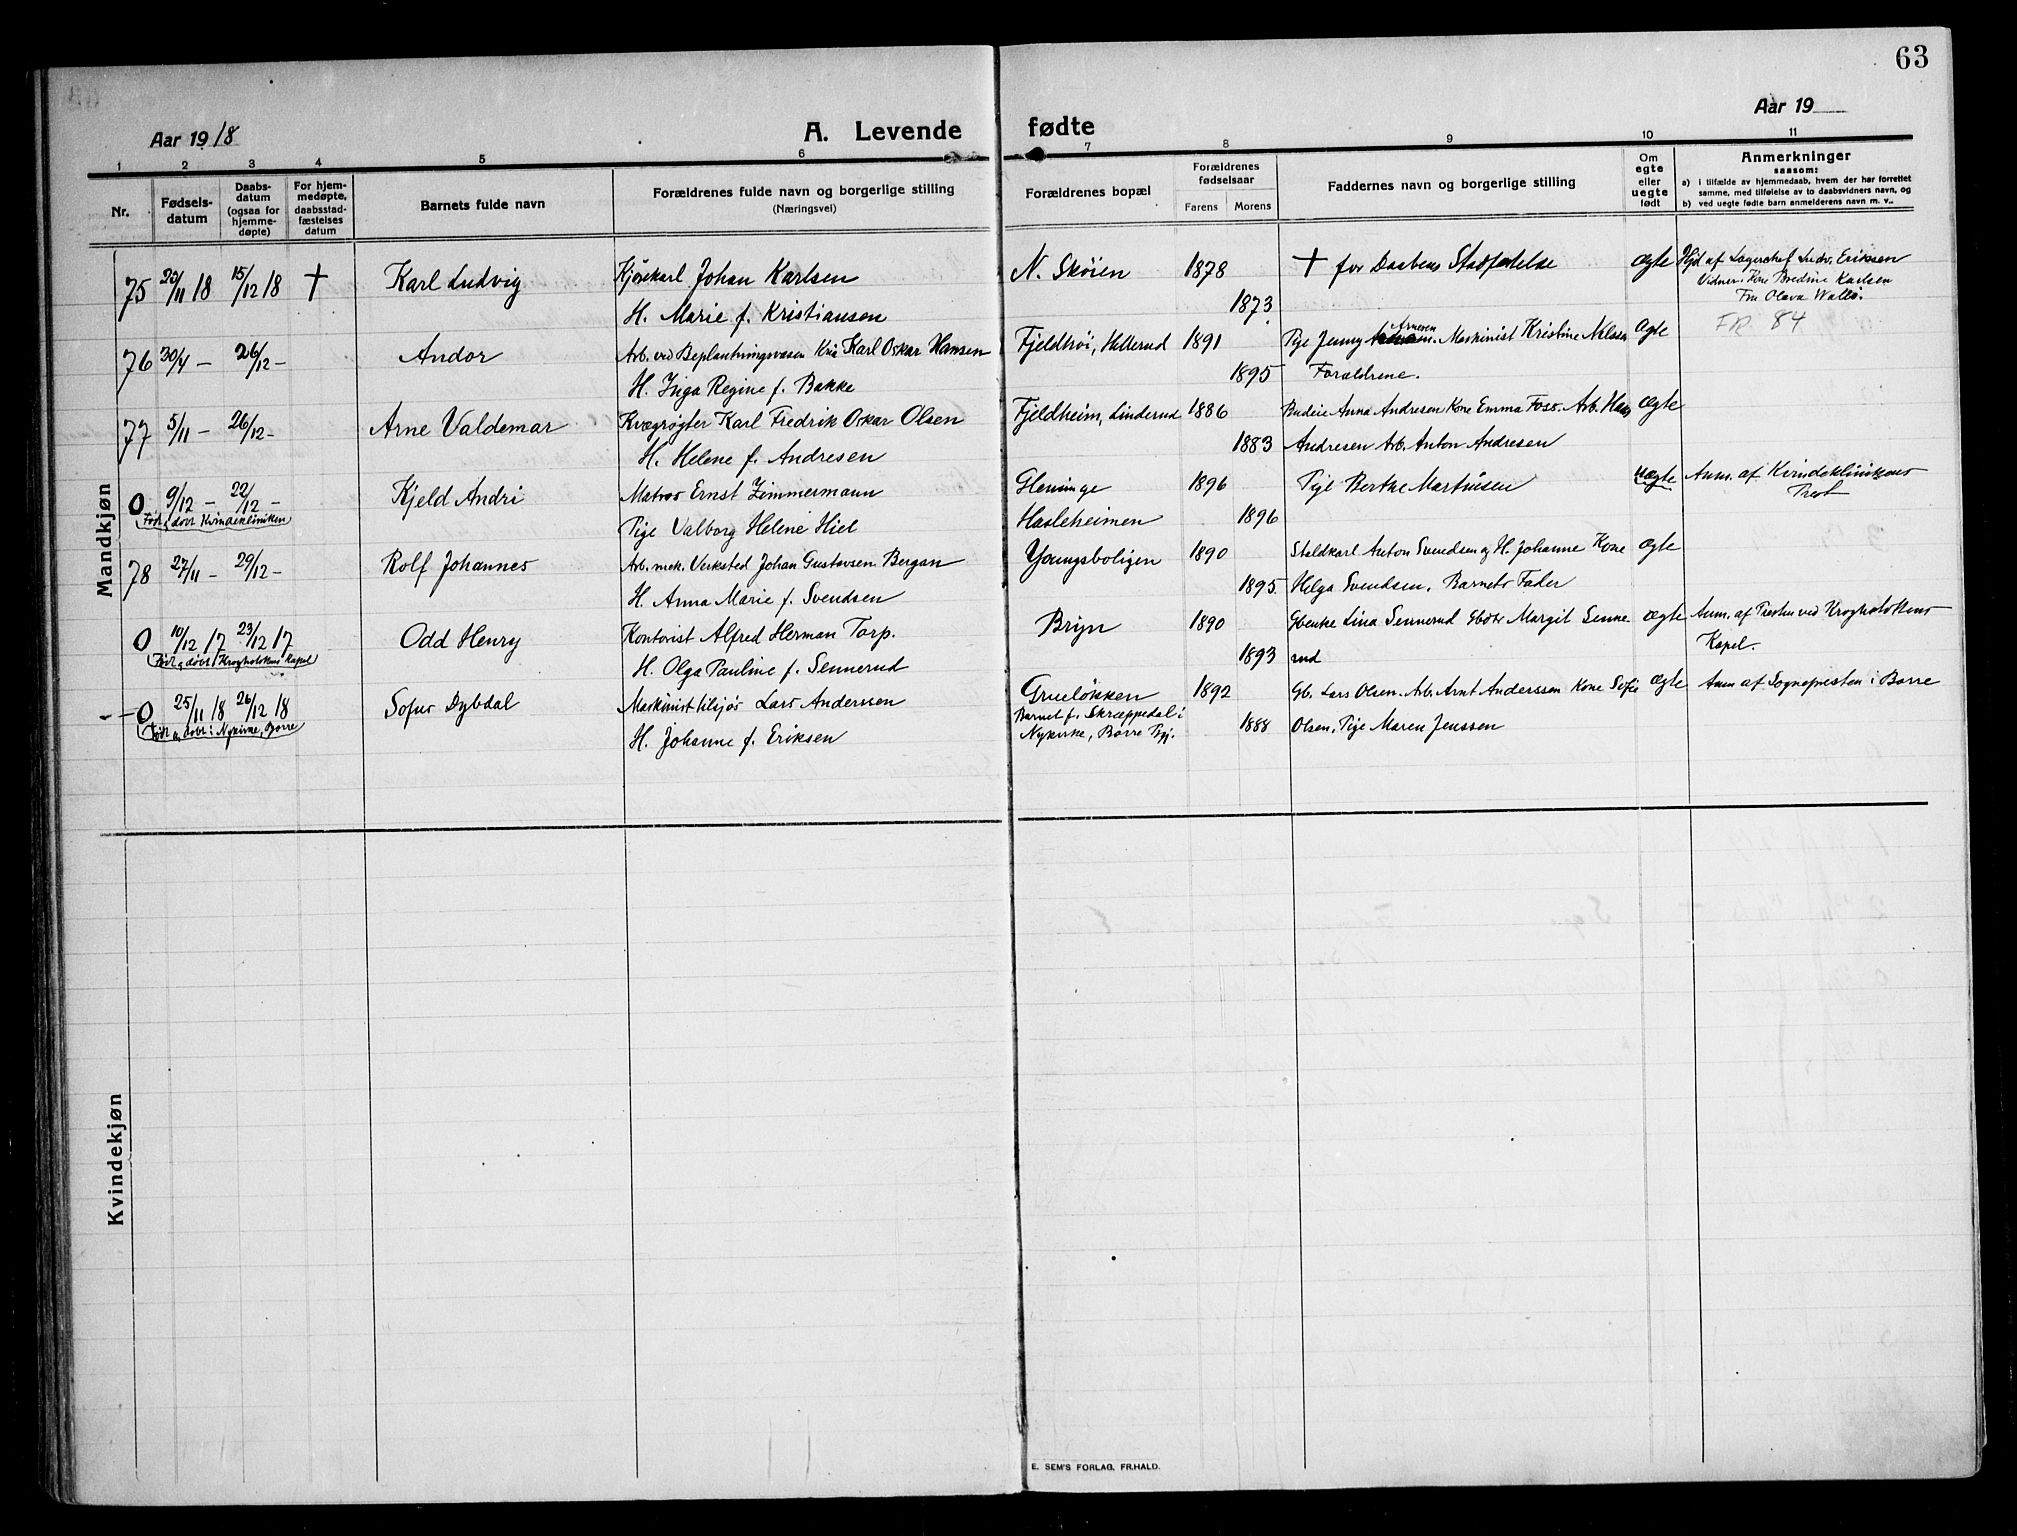 63
Aar 1918
A. Levende fødte
Aar 19
1 2 3 4 5 6 7 8 9 10 11
Nr.
Fødsels-
datum
Daabs-
datum
(ogsaa for
hjemme-
døpte)
For hjem-
medøpte,
daabsstad-
fæstelses
datum
Barnets fulde navn
Forældrenes fulde navn og borgerlige stilling
(Næringsvei)
Forældrenes bopæl
Forældrenes
fødselsaar
Farens Morens
Faddernes navn og borgerlige stilling
Om
egte
eller
uegte
født
Anmerkninger
saasom:
a) i tilfælde av hjemmedaab, hvem der har forrettet
samme, med tilføielse av to daabsvidners navn, og
b) ved uegte fødte barn anmelderens navn m. v..
Mandkjøn
75 20/11 18 15/12 18 † Karl Ludvig Kjørekarl Johan Karlsen N. Skøien 1878 † før Daabens Stadfæstelse Ægte Hjd af Lagerchef Ludv. Eriksen
Vidner: Kone Bredine Karlsen
H. Marie f. Kristiansen 1873 Fru Olava Wallø.
FR. 84
76 30/4 – 26/12 – Andor Arb. ved Beplantningsvæsen Kra Karl Oskar Hansen Fjeldhøi, Hellerud 1891 Pige Jenny Arnesen. Maskinist Kristine Nilssen Ægte
H. Inga Regine f. Bakke 1895 Forældrene.
77 5/11 – 26/12 – Arne Valdemar Kvægrøgter Karl Fredrik Oskar Olsen Fjeldheim, Linderud 1886 Budeie Anna Andresen Kone Emma Foss. Arb. Hans Ægte
H. Helene f. Andresen 1883 Andresen Arb. Anton Andresen
0 9/12 – 22/12 – Kjeld Andri Matros Ernst Zimmermann Glemminge 1896 Pige Berthe Martinsen Uægte Anm. af Kvindeklinikens
Prest
Født & døbt Kvindekliniken
Pige Valborg Helene Hiel Hasleheimen 1896
78 27/11 – 29/12 – Rolf Johannes Arb. mek. Verksted Johan Gustavsen Bergan Youngsboligen 1890 Staldkarl Anton Svendsen og H. Johanne Kone Ægte
H. Anna Marie f. Svendsen 1895 Helga Svendsen. Barnets Fader
0 10/12 17 23/12 17 Odd Henry Kontorist Alfred Herman Torp. Bryn 1890 Gbenke Lina Sennerud Gbdtr Margit Senne Ægte Anm. af Presten ved Krogholokkens
Født & døbt Krogholokkens Kapel
H. Olga Pauline f. Sennerud 1893 rud Kapel.
0 25/11 18 26/12 18 Sofus Dybdal Maskinist tilsjøs Lars Anderssen Grueløkken 1892 Gb. Lars Olsen. Arb. Arnt Anderssen Kone Sofie Ægte Anm af Sognepresten i Borre
Født & døbt i Nykirke, Borre
Barnet f. Skræppedal i
Nykirke, Borre Pgj.
H. Johanne f. Eriksen 1888 Olsen, Pige Maren Jenssen
Kvindekjøn
E. SEM'S FORLAG, FR.HALD.